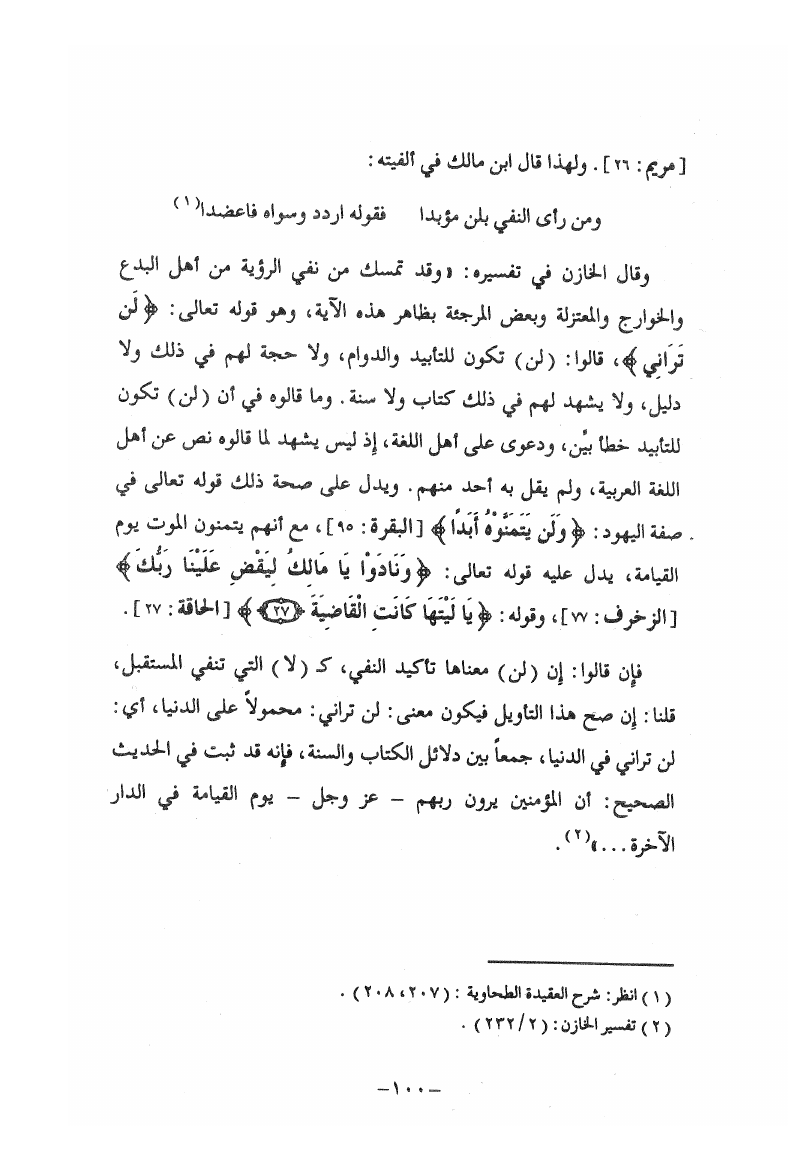 [مريم: ٢٦]. ولهذا قال ابن مالك في ألفيته:
ومن رأى النفي بلن مؤبدا فقوله اردد وسواه فاعضدا(١)
وقال الخازن في تفسيره: «وقد تمسك من نفي الرؤية من أهل البدع
والخوارج والمعتزلة وبعض المرجئة بظاهر هذه الآية، وهو قوله تعالى: ﴿لَن
تَرَانِي﴾، قالوا: (لن) تكون للتأبيد والدوام، ولا حجة لهم في ذلك ولا
دليل، ولا يشهد لهم في ذلك كتاب ولا سنة. وما قالوه في أن (لن) تكون
للتأبيد خطأ بيِّن، ودعوى على أهل اللغة، إذ ليس يشهد لما قالوه نص عن أهل
اللغة العربية، ولم يقل به أحد منهم. ويدل على صحة ذلك قوله تعالى في
صفة اليهود: ﴿وَلَن يَتَمَنَّوْهُ أَبَدًا﴾ [البقرة: ٩٥]، مع أنهم يتمنون الموت يوم
القيامة، يدل عليه قوله تعالى: ﴿وَنَادَوْا يَا مَالِكُ لِيَقْضِ عَلَيْنَا رَبُّكَ﴾
[الزخرف: ٧٧]، وقوله: ﴿يَا لَيْتَهَا كَانَتِ الْقَاضِيَةَ ﴿٢٧﴾﴾ [الحاقة: ٢٧].
فإن قالوا: إن (لن) معناها تأكيد النفي، كـ (لا) التي تنفي المستقبل،
قلنا: إن صح هذا التأويل فيكون معنى: لن تراني: محمولاً على الدنيا، أي:
لن تراني في الدنيا، جمعاً بين دلائل الكتاب والسنة، فإنه قد ثبت في الحديث
الصحيح: أن المؤمنين يرون ربهم – عز وجل – يوم القيامة في الدار
الآخرة...»(٢).
(١) انظر: شرح العقيدة الطحاوية: (٢٠٧، ٢٠٨).
(٢) تفسير الخازن: (٢/٢٣٢).
–١٠٠–